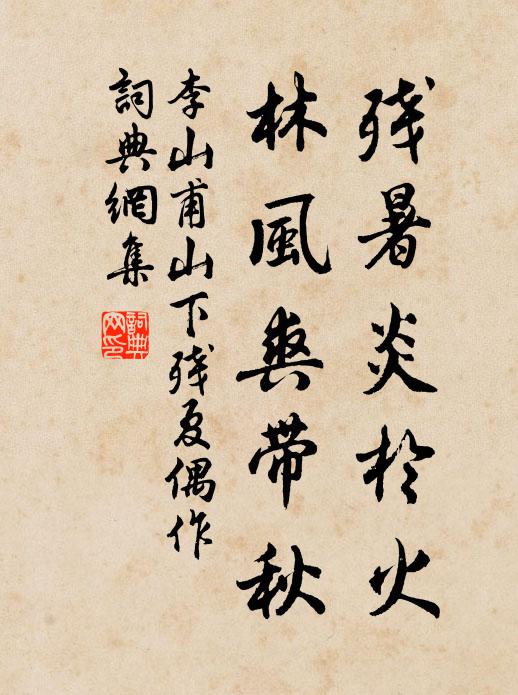 残暑炎於火
林風爽帶秋
李山甫山下残夏偶作
詞典網集
詞典網印